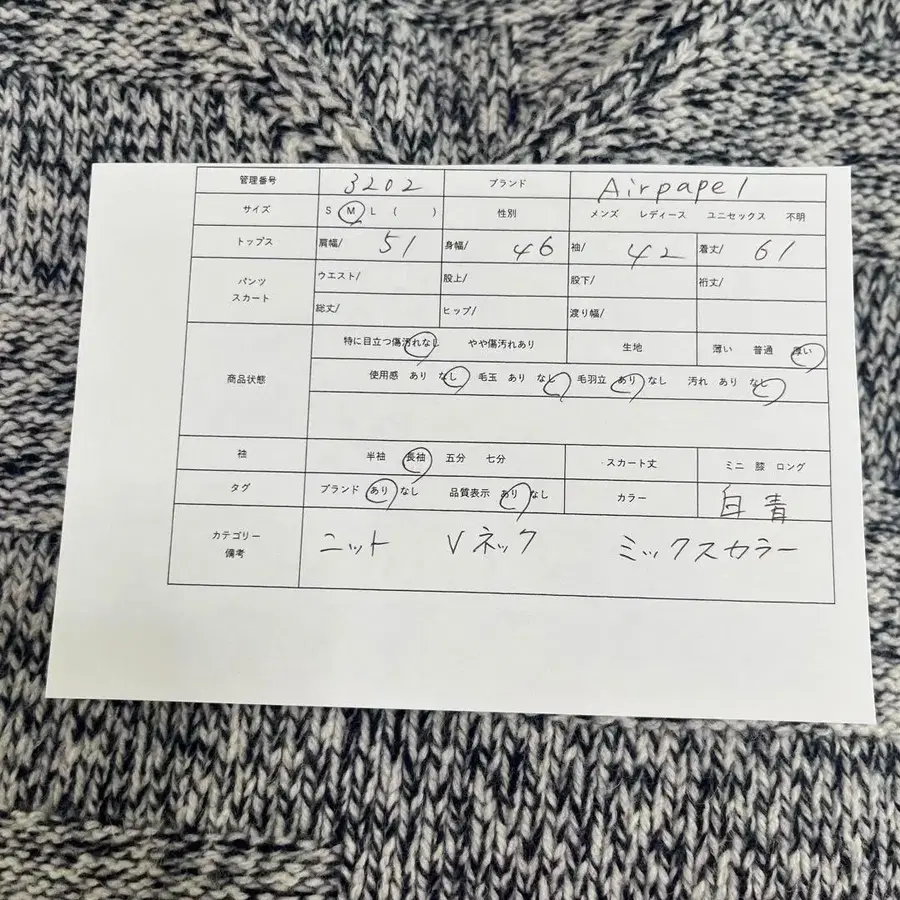 管理番号 3202 ブランド Airpapel
サイズ S M L ( ) 性別 メンズ レディース ユニセックス 不明
トップス 肩幅/ 51 身幅/ 46 袖/ 42 着丈/ 61
パンツ スカート ウエスト/ 股上/ 股下/ 裄丈/
総丈/ ヒップ/ 渡り幅/
商品状態 特に目立つ傷汚れなし やや傷汚れあり 生地 薄い 普通 厚い
使用感 あり なし 毛玉 あり なし 毛羽立 あり なし 汚れ あり なし
袖 半袖 長袖 五分 七分 スカート丈 ミニ 膝 ロング
タグ ブランド あり なし 品質表示 あり なし カラー 白 青
カテゴリー 備考 ニット Vネック ミックスカラー